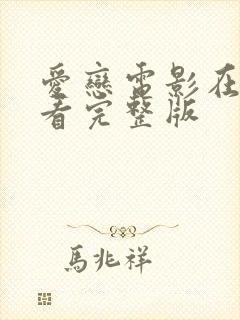 愛戀電影在
看完整版
馬兆祥